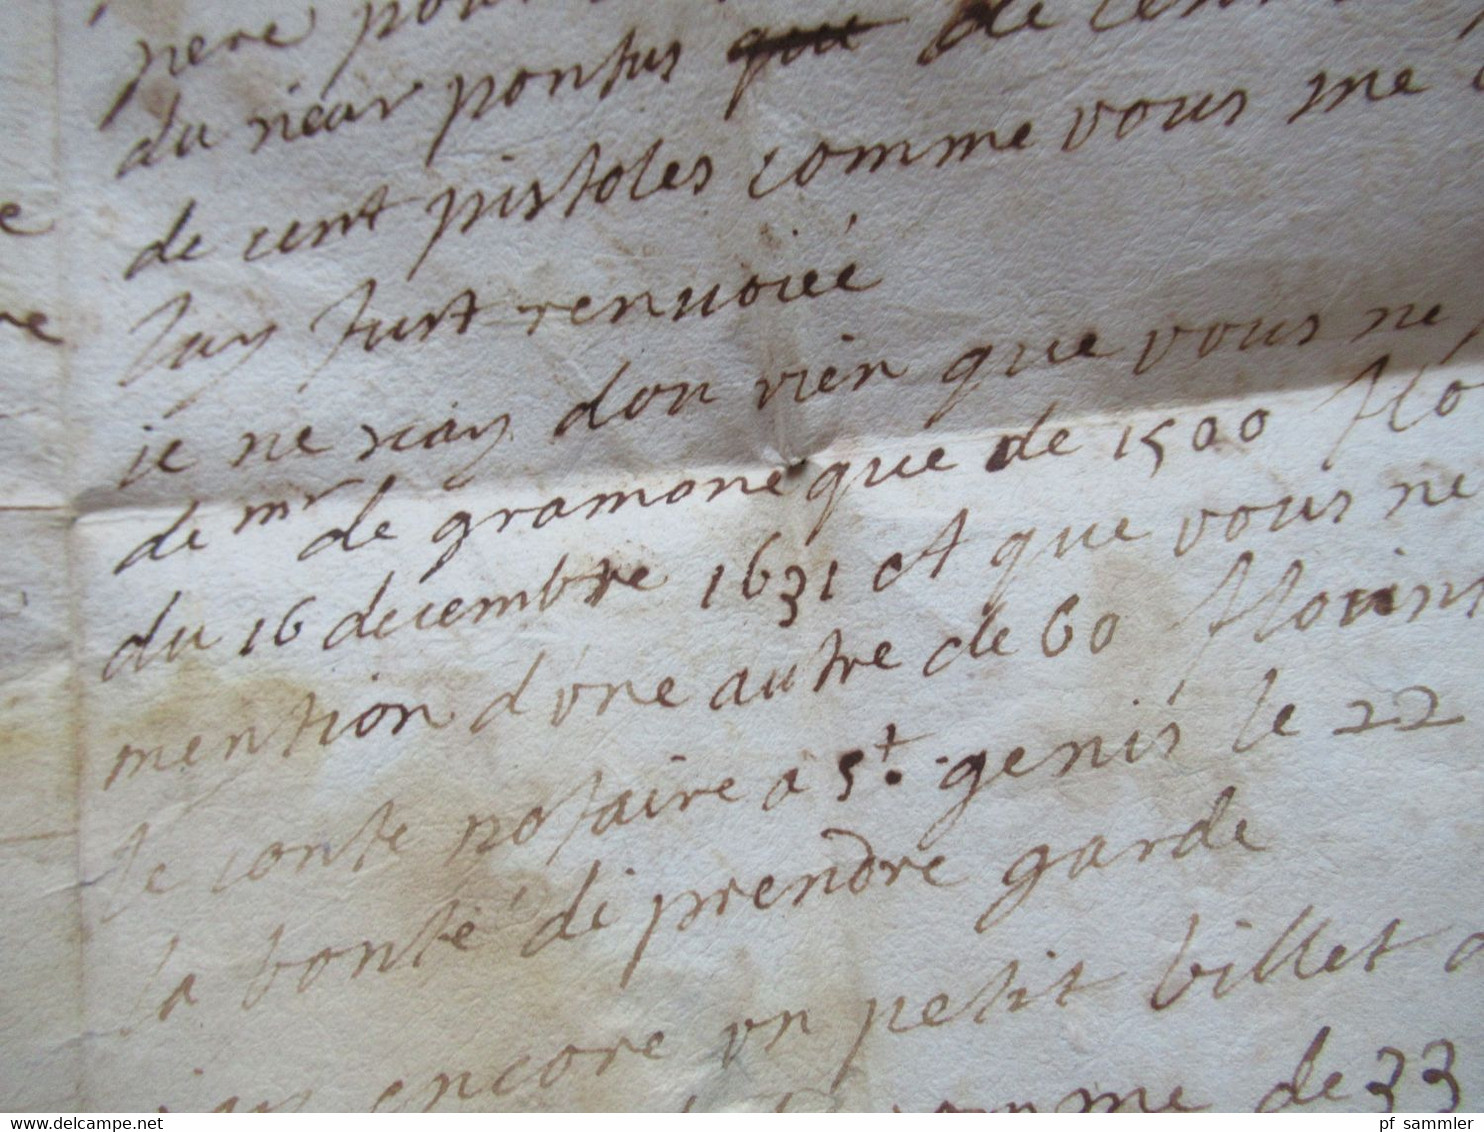 pere pour
du sieur pontus que de
de cent pistoles comme vous me
lay fust renuoiée
je ne sçay don rien que vous ne
de mr de gramone que de 1500 flo
du 16 decembre 1631 et que vous ne
mention d'one autre de 60 florins
le conte notaire a st. genis le 22
la bonté di prendre garde
encore un petit billet
comme de 33
pf sammler